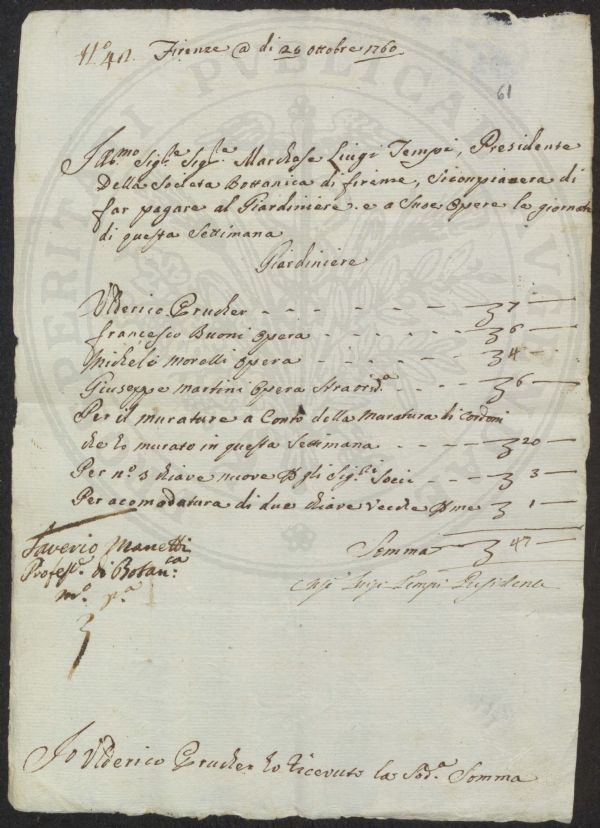 N.o 40. Firenze @ di 26 ottobre 1760
61
Ill.mo Sig.re Sig.re Marchese Luigi Tempi, Presidente
Della Societa Bottanica di firenze, Si conpiacera di
far pagare al Giardiniere e a Suoe Opere la giornate
di questa Settimana
Giardiniere
Ulderico Prucker - - - - - - - - 7 —
francesco Buoni Opera - - - - - - 6 —
Michele Morelli Opera - - - - - - 4 —
Giuseppe Martini Opera Straord.a - - - 6 —
Per il muratore a Conto della Muratura di Cordoni
che ho murato in questa Settimana - - - 20 —
Per n.o 3 chiave nuove p gli Sig.i Socii - - 3 —
Per acomodatura di due chiave Vecche p me - 1 —
Somma - 47 —
Saverio Manetti
Profes.e di Botan.ca
m.o p.a
Luigi Tempi Presidente
Io Ulderico Prucker ho ricevuto la Sod.a Somma